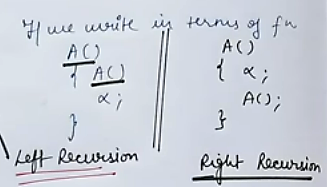 If we write in terms of fn
A()
{ A()
α;
}
Left Recursion
A()
{ α;
A();
}
Right Recursion